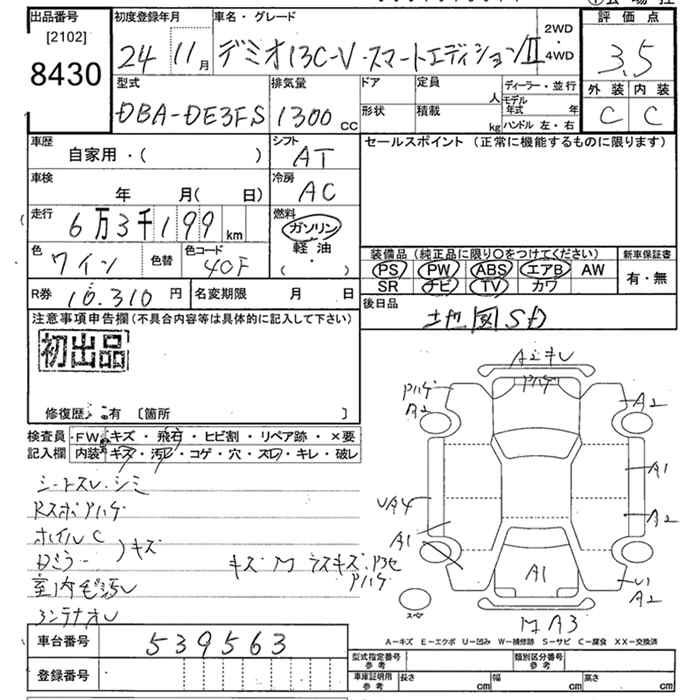 出品番号
[2102]
8430
初度登録年月
24 11月
車名・グレード
デミオ13C-V・スマートエディションⅡ
2WD
・
4WD
評価点
3.5
外装 内装
C C
型式
DBA-DE3FS
排気量
1300 CC
ドア
形状
定員
人
積載
kg
ディーラー・並行
モデル年式 年
ハンドル 左・右
車歴
自家用・( )
シフト
AT
セールスポイント (正常に機能するものに限ります)
車検
年 月( 日)
冷房
AC
走行
6万3千199km
燃料
ガソリン
軽油
( ・ )
色
ワイン
色替
色コード
40F
装備品 (純正品に限り○をつけてください)
PS PW ABS エアB AW
SR ナビ TV カワ
新車保証書
有・無
R券
10.310円
名変期限 月 日
後日品
地図SD
注意事項申告欄(不具合内容等は具体的に記入して下さい)
初出品
修復歴 有 [箇所 ]
検査員
記入欄
FW キズ・飛石・ヒビ割・リペア跡・×要
内装 キズ・汚レ・コゲ・穴・スレ・キレ・破レ
シートスレ・シミ
Rスポアハゲ
ホイルC
キズ
室内
キズM ラスキズ
アハゲ
アハゲ
A2
アハゲ
A2
A1
A2
UA4
A1
A1
A2
M A3
スペア
A-キズ E-エクボ U-凹み W-補修跡 S-サビ C-腐食 XX-交換済
車台番号
539563
登録番号
型式指定番号
参考
類別区分番号
参考
車庫証明用
参考
長さ cm
幅 cm
高さ cm